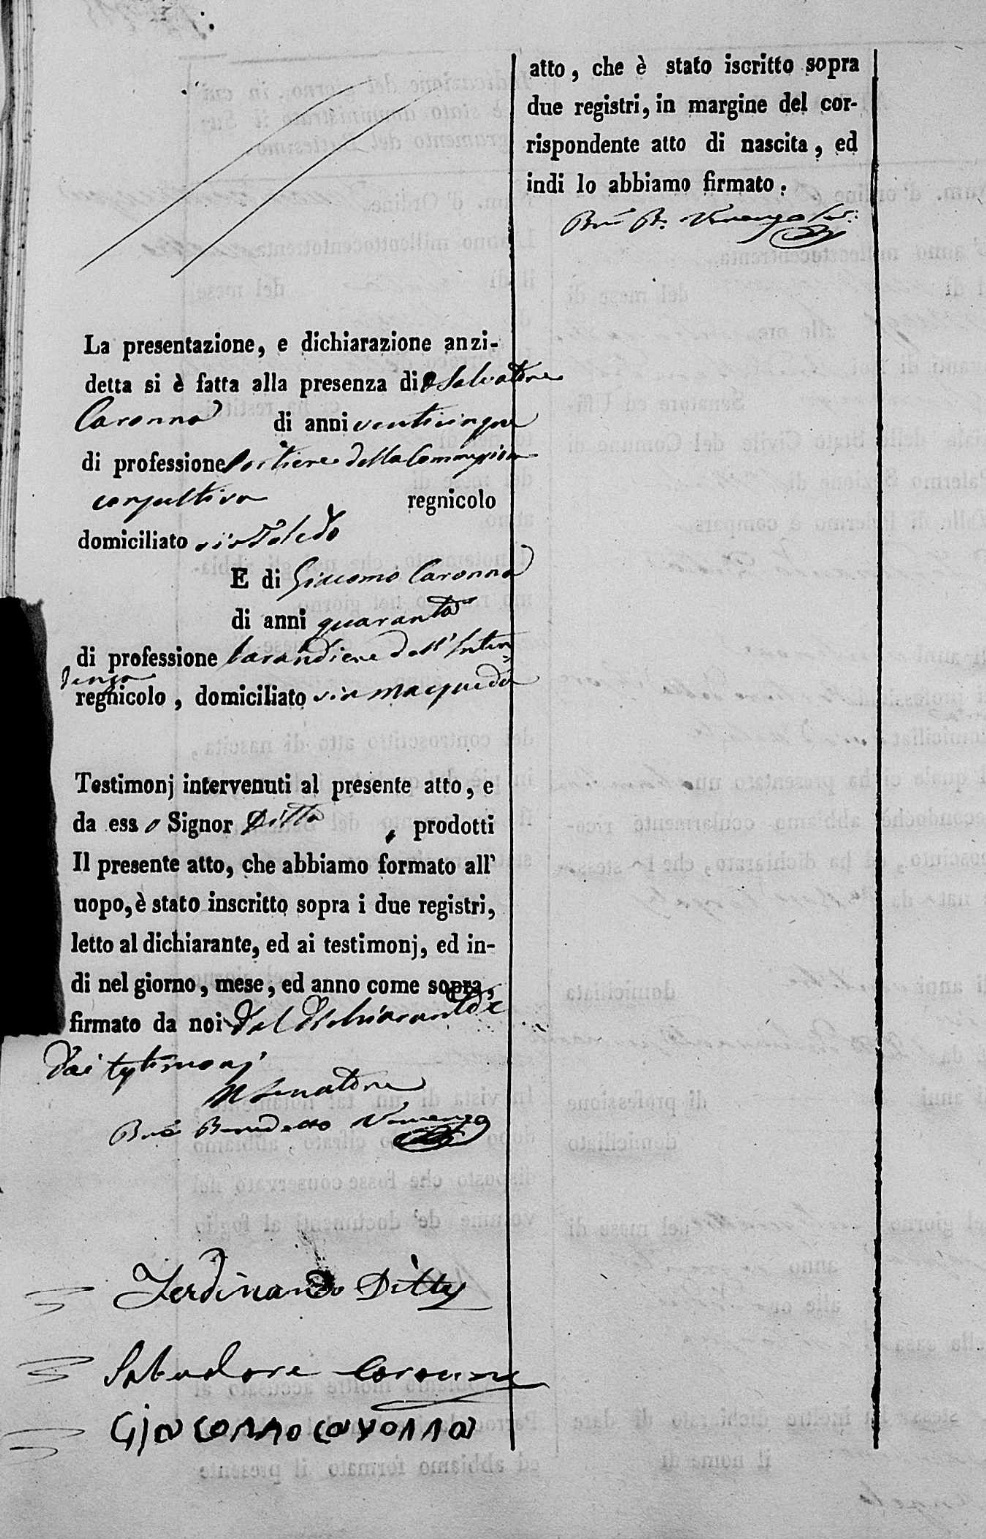 La presentazione, e dichiarazione anzi-
detta si è fatta alla presenza di Salvatore
Caronna di anni venticinque
di professione Portiere della Commissione
consultiva regnicolo
domiciliato via Toledo
E di Giacomo Caronna
di anni quaranta
di professione Locandiere dell'Inten
denza
regnicolo, domiciliato via Macqueda
Testimonj intervenuti al presente atto, e
da esso Signor Ditta, prodotti
Il presente atto, che abbiamo formato all'
uopo, è stato inscritto sopra i due registri,
letto al dichiarante, ed ai testimonj, ed in-
di nel giorno, mese, ed anno come sopra,
firmato da noi dal dichiarante e
dai testimonj
Il Senatore
Benedetto
Ferdinando Ditta
Salvadore Caronna
Giacomo Caronna
atto, che è stato iscritto sopra
due registri, in margine del cor-
rispondente atto di nascita, ed
indi lo abbiamo firmato.